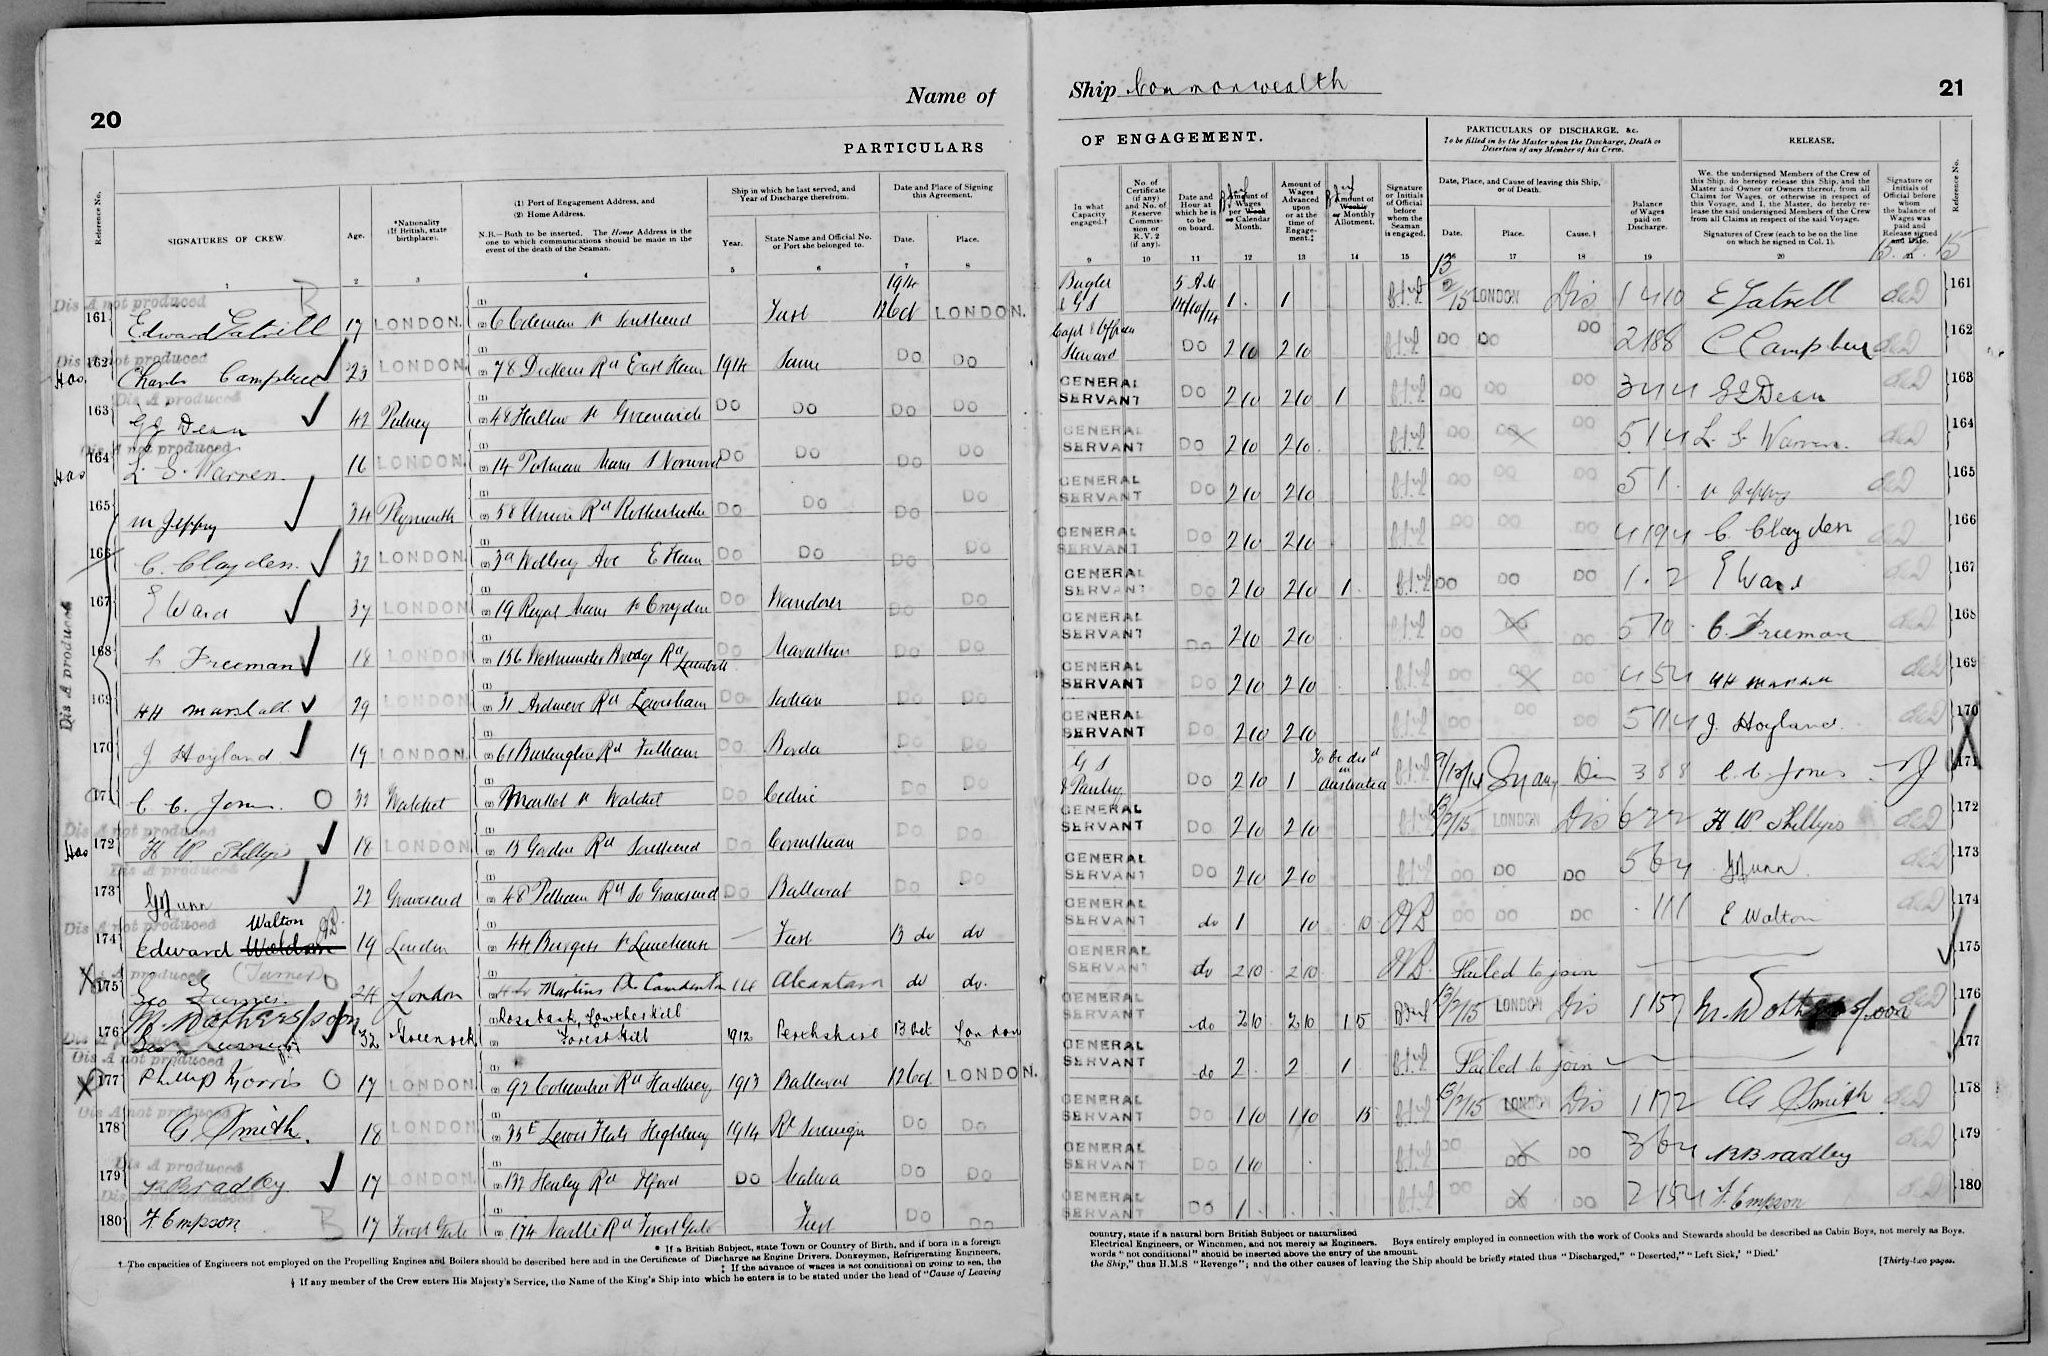 20
Name of
PARTICULARS
Reference No.
SIGNATURES OF CREW.
Age.
*Nationality (If British, state birthplace).
(1) Port of Engagement Address, and
(2) Home Address.
N.B.—Both to be inserted. The Home Address is the one to which communications should be made in the event of the death of the Seaman.
Ship in which he last served, and Year of Discharge therefrom.
Year.
State Name and Official No. or Port she belonged to.
Date and Place of Signing this Agreement.
Date.
Place.
1 2 3 4 5 6 7 8
1914
Dis A not produced
161 Edward Gatrell 17 LONDON. (1) (2) 6 Coleman St Southend First 12 Oct LONDON.
Dis A not produced
162 Charles Campbell 23 LONDON (1) (2) 78 Dickens Rd East Ham 1914 Same Do Do
Dis A produced
163 G J Dean 42 Putney (1) (2) 48 St Greenwich Do Do Do Do
Dis A not produced
164 L. G. Warren. 16 LONDON (1) (2) 14 S Norwood Do Do Do Do
165 M Jeffry 34 Plymouth (1) (2) 58 Union Rd Rotherhithe Do Do Do Do
166 C. Clayden. 32 LONDON (1) (2) 3a Wolsey Ave E Ham Do Do Do Do
167 E Ward 37 LONDON (1) (2) 19 Royal St Croydon Do Do Do
168 C Freeman 18 LONDON (1) (2) 156 Westminster Bridge Rd Lambeth Do Marathon Do Do
Dis A produced
169 HH Marshall. 29 LONDON (1) (2) 31 Rd Lewisham Do Indian Do Do
170 J Hoyland 19 LONDON (1) (2) 61 Burlington Rd Fulham Do Borda Do Do
171 C. C. Jones. 32 Watchet (1) (2) Market St Watchet Do Cedric Do Do
Dis A not produced
172 H W Phillips 18 LONDON (1) (2) 13 Gordon Rd Southend Do Corinthian Do Do
Dis A produced
173 G Gunn 22 Gravesend (1) (2) 48 Pelham Rd So Gravesend Do Ballarat Do
Dis A not produced
Walton
174 Edward 19 London (1) (2) 44 Burgess St Limehouse First 13 do do
produced (Turner)
175 Geo Turner. 24 London (1) (2) Martins Camden Tn Alcantara do do.
176 M. Wotherspoon 32 Greenock (1) Rosebank, (2) Forest Hill 1912 Perthshire 13 Oct London
Dis A not produced
177 Phillip Morris 17 LONDON (1) (2) 92 Columbia Rd Hackney 1913 Ballarat 12 Oct LONDON.
Dis A not produced
178 G Smith. 18 LONDON (1) (2) 35E Lewis Flats Highbury 1914 Rl Sovereign Do Do
Dis A produced
179 R Bradley. 17 LONDON (1) (2) 132 Henley Rd Ilford Do Malwa Do Do
Dis A not produced
180 F Empson 17 Forest Gate (1) (2) 174 Neville Rd Forest Gate First Do Do
* If a British Subject, state Town or Country of Birth, and if born in a foreign
† The capacities of Engineers not employed on the Propelling Engines and Boilers should be described here and in the Certificate of Discharge as Engine Drivers, Donkeymen, Refrigerating Engineers,
‡ If the advance of wages is not conditional on going to sea, the
§ If any member of the Crew enters His Majesty's Service, the Name of the King's Ship into which he enters is to be stated under the head of "Cause of Leaving
Ship Commonwealth
21
OF ENGAGEMENT.
PARTICULARS OF DISCHARGE, &c.
To be filled in by the Master upon the Discharge, Death or Desertion of any Member of his Crew.
RELEASE.
In what Capacity engaged.†
No. of Certificate (if any) and No. of Reserve Commission or R.V.2 (if any).
Date and Hour at which he is to be on board.
Amount of Wages per Week or Calendar Month.
Amount of Wages Advanced upon or at the time of Engagement.‡
Amount of Weekly or Monthly Allotment.
Signature or Initials of Official before whom the Seaman is engaged.
Date, Place, and Cause of leaving this Ship, or of Death.
Date.
Place.
Cause.†
Balance of Wages paid on Discharge.
We, the undersigned Members of the Crew of this Ship, do hereby release this Ship, and the Master and Owner or Owners thereof, from all Claims for Wages, or otherwise in respect of this Voyage, and I, the Master, do hereby release the said undersigned Members of the Crew from all Claims in respect of the said Voyage.
Signatures of Crew (each to be on the line on which he signed in Col. 1).
Signature or Initials of Official before whom the balance of Wages was paid and Release signed and Date.
Reference No.
9 10 11 12 13 14 15 16 17 18 19 20 21
Bugler & G S 5 AM 14/10/14 1. 1 13/2/15 LONDON Dis 1 4 10 E Gatrell 161
Steward Do 2 10 2 10 Do Do Do 2 18 8 C Campbell 162
GENERAL SERVANT Do 2 10 2 10 1 Do Do Do 3 4 4 G J Dean 163
GENERAL SERVANT Do 2 10 2 10 Do Do Do 5 1 4 L. G. Warren. 164
GENERAL SERVANT Do 2 10 2 10 Do Do Do 5 1. M Jeffry 165
GENERAL SERVANT Do 2 10 2 10 Do Do Do 4 19 4 C. Clayden 166
GENERAL SERVANT Do 2 10 2 10 1 Do Do Do 1. 2 E Ward 167
GENERAL SERVANT Do 2 10 2 10 Do Do Do C. Freeman 168
GENERAL SERVANT Do 2 10 2 10 Do Do Do 4 5 4 HH Marshall 169
GENERAL SERVANT Do 2 10 2 10 Do Do Do J. Hoyland 170
G S & Pantry Do 2 10 1 To be disd in Australia Sydney Dis 3 8 8 C. C Jones 171
GENERAL SERVANT Do 2 10 2 10 13/2/15 LONDON Dis H W Phillips 172
GENERAL SERVANT Do 2 10 2 10 Do Do Do 5 6 4 G Gunn 173
GENERAL SERVANT do 1 10 10 Do Do Do 1 11 E Walton 174
GENERAL SERVANT do 2 10 2 10 Failed to join 175
GENERAL SERVANT do 2 10 2 10 1 5 13/2/15 LONDON Dis 1 15 7 M. Wotherspoon 176
GENERAL SERVANT do 2 2 1 Failed to join 177
GENERAL SERVANT Do 1 10 1 10 15 13/2/15 LONDON Dis 1 17 2 G Smith 178
GENERAL SERVANT Do 1 10 Do Do Do 3 6 4 R Bradley 179
GENERAL SERVANT Do 1. Do Do Do 2 15 4 F. Empson 180
country, state if a natural born British Subject or naturalized
Electrical Engineers, or Winchmen, and not merely as Engineers. Boys entirely employed in connection with the work of Cooks and Stewards should be described as Cabin Boys, not merely as Boys.
words "not conditional" should be inserted above the entry of the amount.
the Ship," thus H.M.S "Revenge"; and the other causes of leaving the Ship should be briefly stated thus "Discharged," "Deserted," "Left Sick,' "Died.'
[Thirty-two pages.